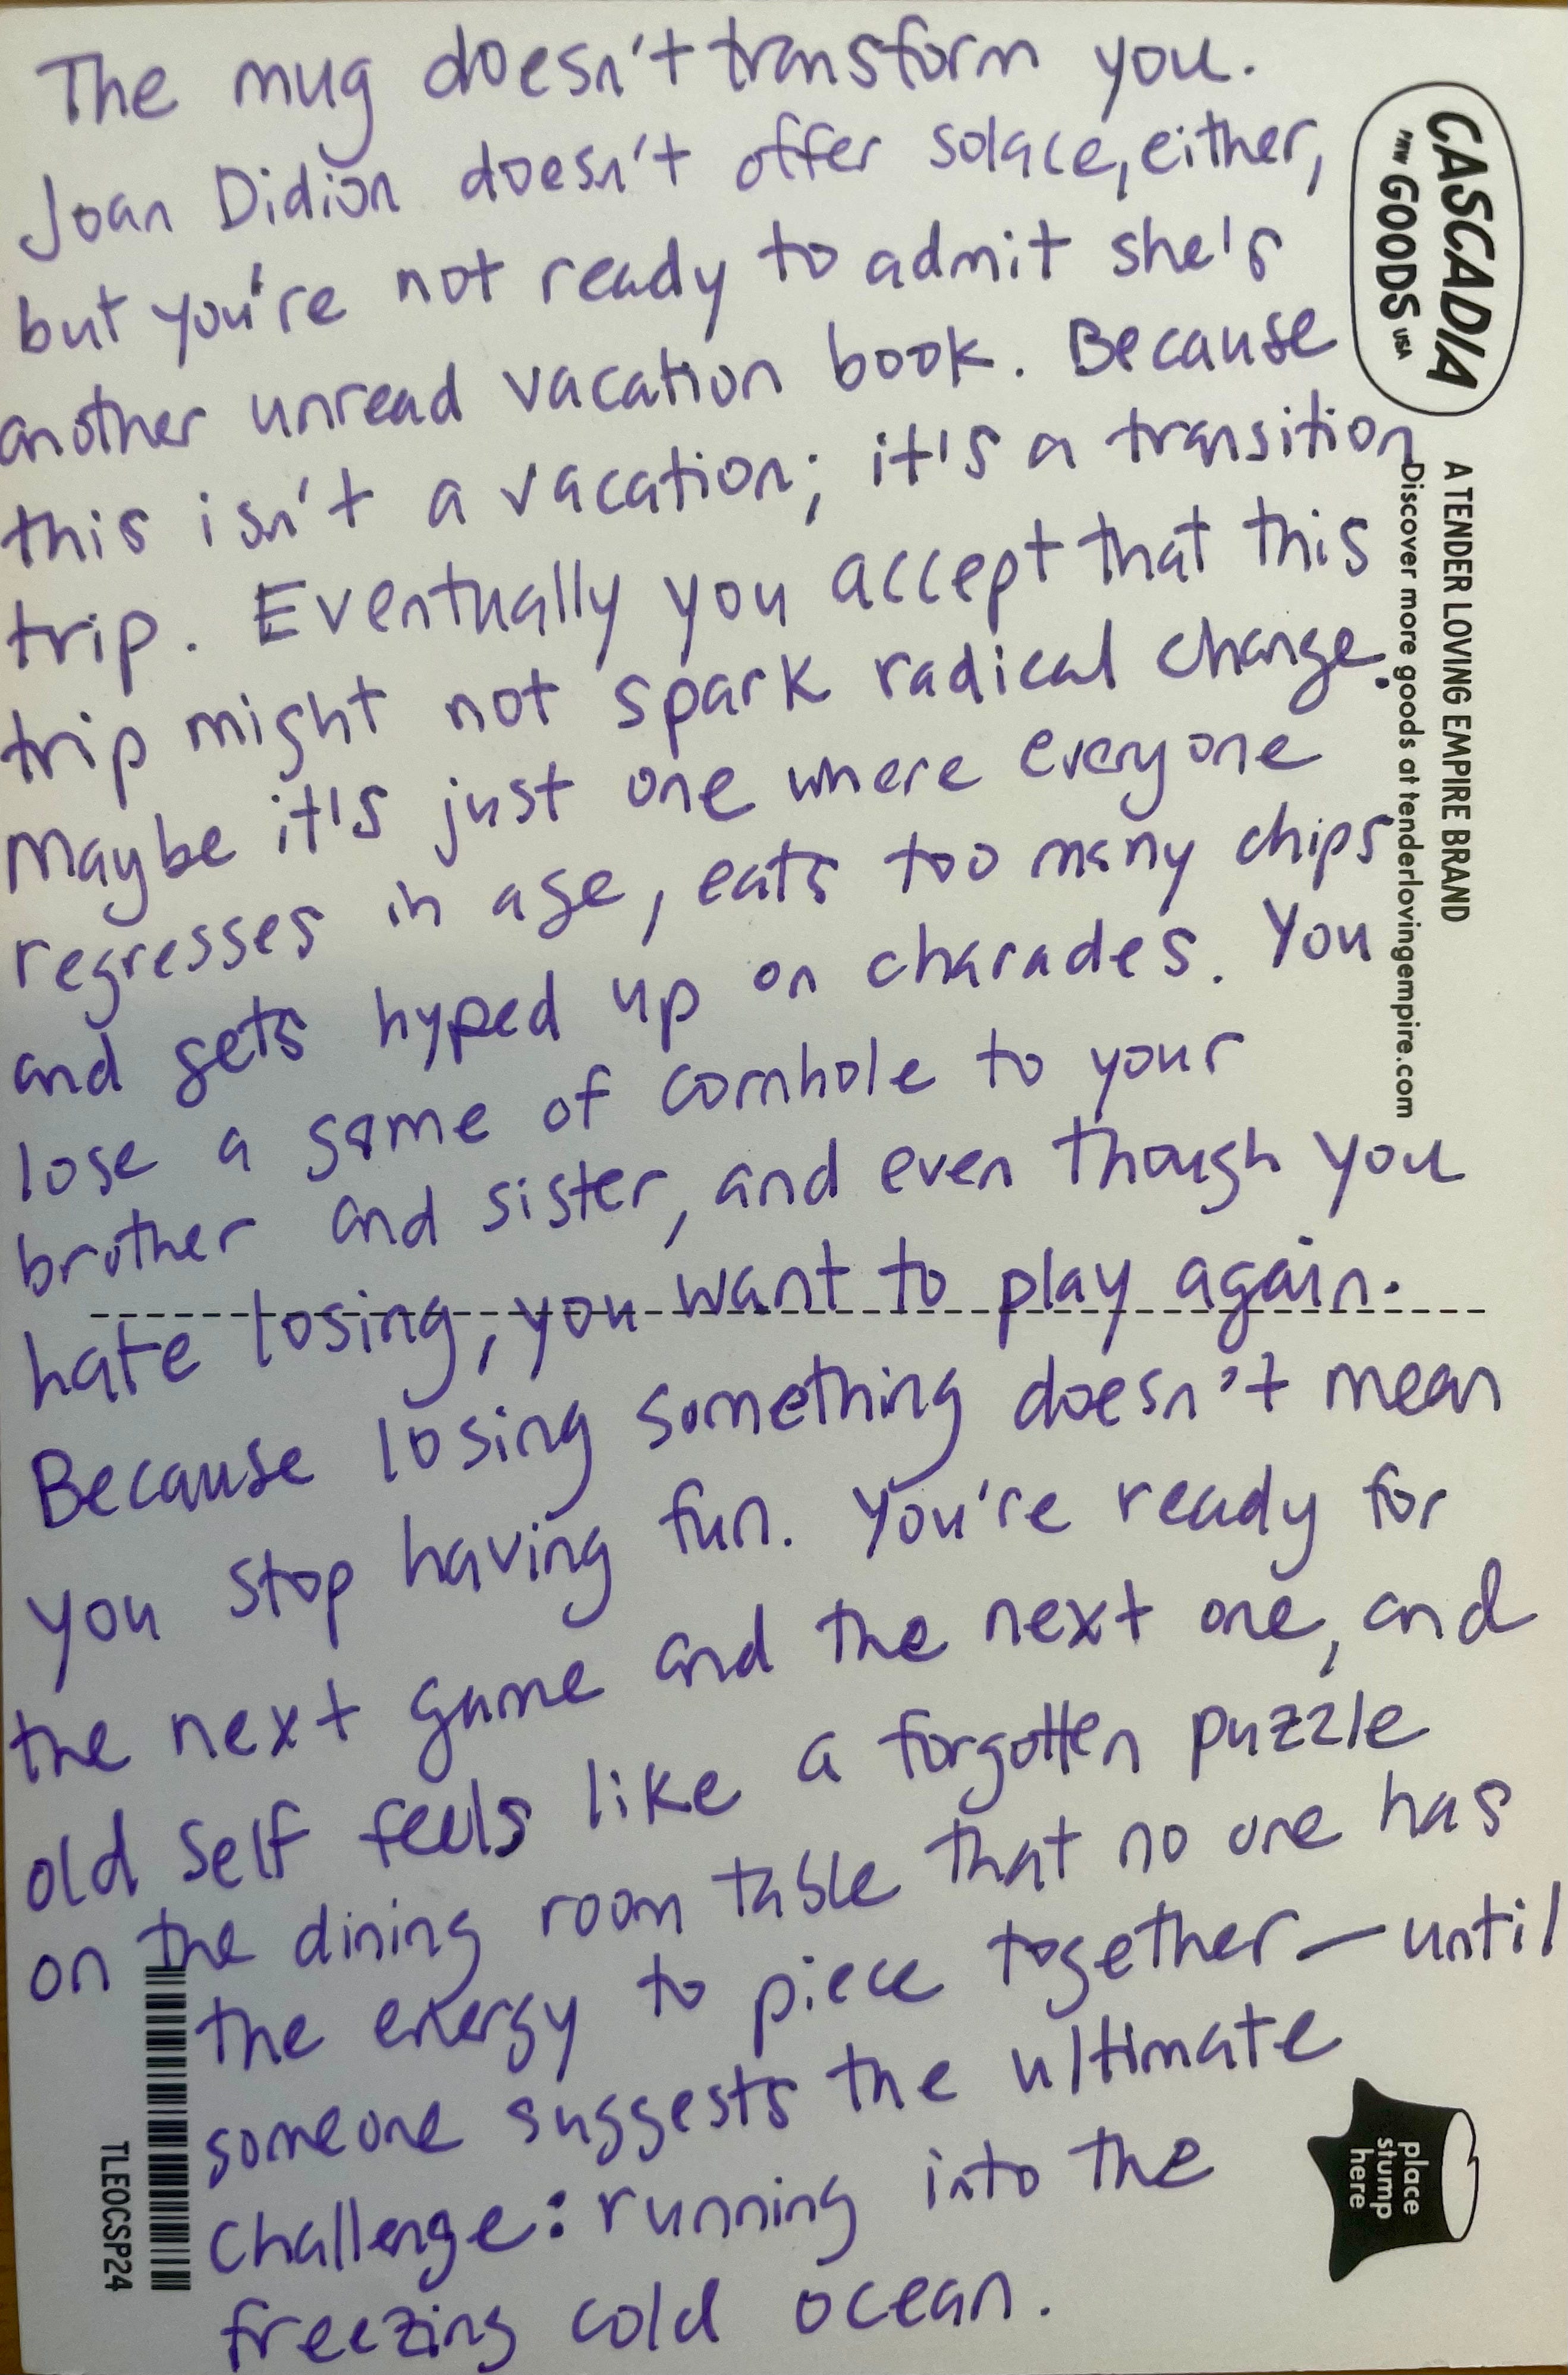 The mug doesn't transform you.
Joan Didion doesn't offer solace, either,
but you're not ready to admit she's
another unread vacation book. Because
this isn't a vacation; it's a transition
trip. Eventually you accept that this
trip might not spark radical change.
Maybe it's just one where everyone
regresses in age, eats too many chips
and gets hyped up on charades. You
lose a game of cornhole to your
brother and sister, and even though you
hate losing, you want to play again.
Because losing something doesn't mean
you stop having fun. You're ready for
the next game and the next one, and
old self feels like a forgotten puzzle
on the dining room table that no one has
the energy to piece together—until
someone suggests the ultimate
challenge: running into the
freezing cold ocean.
CASCADIA
PNW GOODS USA
A TENDER LOVING EMPIRE BRAND
Discover more goods at tenderlovingempire.com
place
stump
here
TLEOCSP24